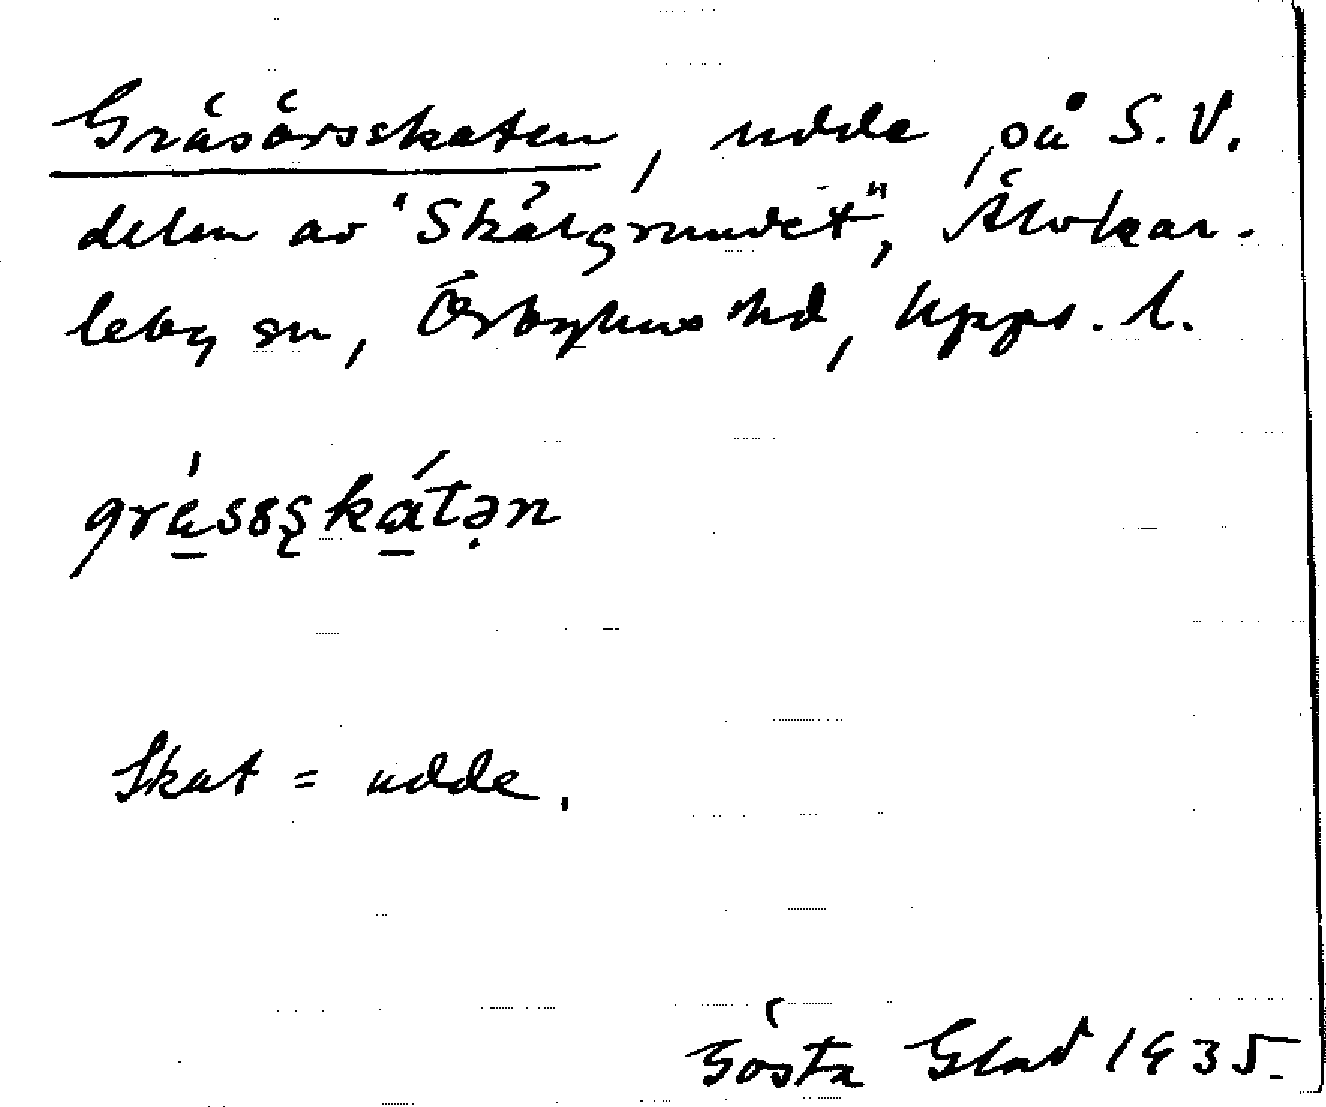 Gräsörsskaten, udde på S.V.
delen av "Skälgrundet", Älvkar-
leby sn, Örbyhus hd, Upps. l.
Skat = udde.
Gösta Glad 1935.